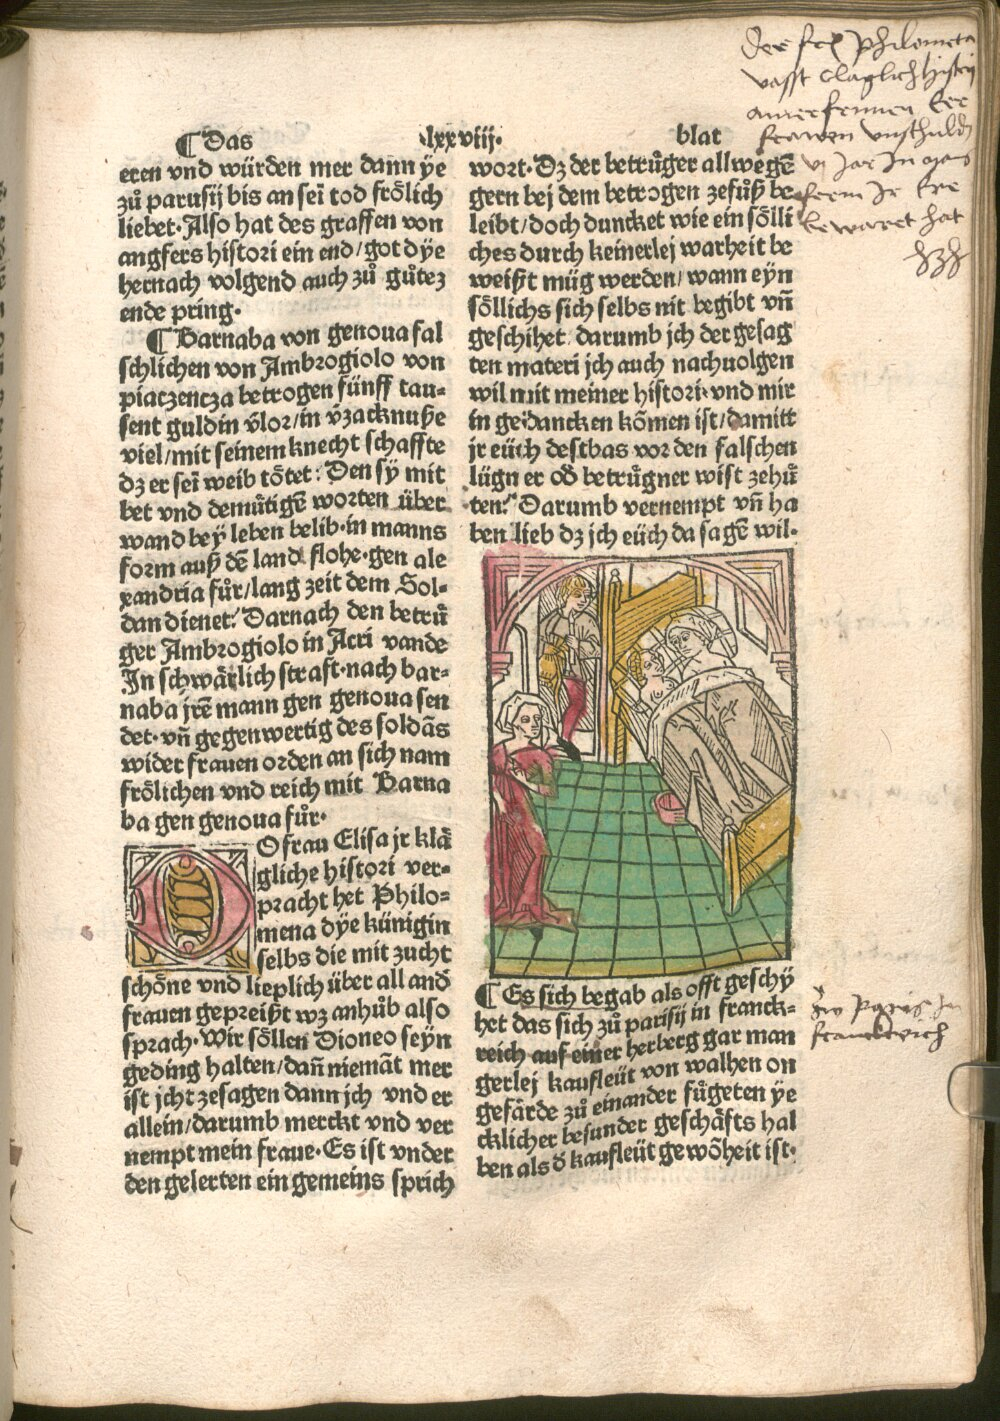 ¶ Das ·lxxviij· blat
eren vnd würden mer dann ÿe
zů parusij bis an sei tod frölich
liebet·Also hat des graffen von
angfers histori ein end/got dÿe
hernach volgend auch zů gůtez
ende pring·
¶ Barnaba von genoua fal
schlichen von Ambrogiolo von
piaczencza betrogen fünff tau-
sent guldin v̈lor/in v̈zacknuße
viel/mit seinem knecht schaffte
dz er sei weib tötet: Den sÿ mit
bet vnd demůtigē worten über
wand beÿ leben belib·in manns
form auß dē land flohe·gen ale
xandria fůr/lang zeit dem Sol-
dan dienet: Darnach den betrů
ger Ambrogiolo in Acri vande
In schwärlich straft·nach bar-
naba jrē mann gen genoua sen
det·vñ gegenwertig des soldās
wider frauen orden an sich nam
frölichen vnd reich mit Barna
ba gen genoua fůr·
DO frau Elisa jr klä
gliche histori ver-
pracht het Philo-
mena dÿe künigin
selbs die mit zucht
schöne vnd lieplich über all and̄
frauen gepreißt wz anhůb also
sprach·Wir söllen Dioneo seÿn
geding halten/dañ niemāt mer
ist jcht zesagen dann jch vnd er
allein/darumb merckt vnd ver
nempt mein fraue·Es ist vnder
den gelerten ein gemeins sprich
wort·Dz der betrůger allwegē
gern bej dem betrogen zefůß be
leibt/doch duncket wie ein sölli
ches durch keinerlej warheit be
weißt müg werden/wann eÿn
söllichs sich selbs nit begibt vñ
geschihet darumb jch der gesag
ten materi jch auch nachuolgen
wil mit meiner histori·vnd mir
in gedancken kömen ist/damitt
jr eüch destbas vor den falschen
lügn er od̄ betrůgner wist zehů
ten: Darumb vernempt vñ ha
ben lieb dz jch eüch da sagē wil·
¶ Es sich begab als offt geschÿ
het das sich zů parisij in franck-
reich auf einer herberg gar man
gerlej kaufleüt von walhen on
gefärde zů einander fůgeten ÿe
cklicher besunder geschäfts hal
ben als d̄ kaufleüt gewöheit ist·
Der philometa
vasst claglich histry
frawen vnschuldz
vj Jar In
Jr Ere
bewaret hat
Zw Parÿs In
franckreich